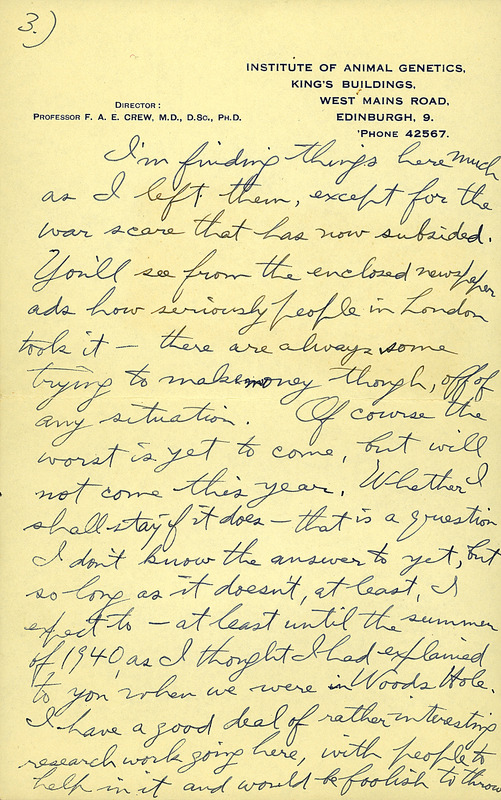 3.)
INSTITUTE OF ANIMAL GENETICS,
KING'S BUILDINGS,
WEST MAINS ROAD,
EDINBURGH, 9.
'PHONE 42567.
DIRECTOR:
PROFESSOR F. A. E. CREW, M.D., D.SC., PH.D.
I'm finding things here much
as I left them, except for the
war scare that has now subsided.
You'll see from the enclosed newspaper
ads how seriously people in London
took it – there are always some
trying to make money though, off of
any situation. Of course the
worst is yet to come, but will
not come this year. Whether I
shall stay if it does – that is a question
I don't know the answer to yet, but
so long as it doesn't, at least, I
expect to – at least until the summer
of 1940, as I thought I had explained
to you when we were in Woods Hole.
I have a good deal of rather interesting
research work going here, with people to
help in it and would be foolish to throw